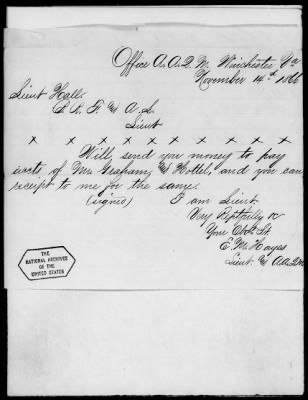 Office A.A.Q.M. Winchester Va
November 14th 1866
Lieut Hall.
B. R. F. & A. L.
Lieut
x x x x x x x x x x x
Will send you money to pay
accts, of Mr Graham, & Hottel, and you can
receipt to me for the same.
(signed) I am Lieut.
Very Rptfully &c
Your Obt. St.
E. M. Hayes
Lieut. & A.A.Q.M.
THE
NATIONAL ARCHIVES
OF THE
UNITED STATES